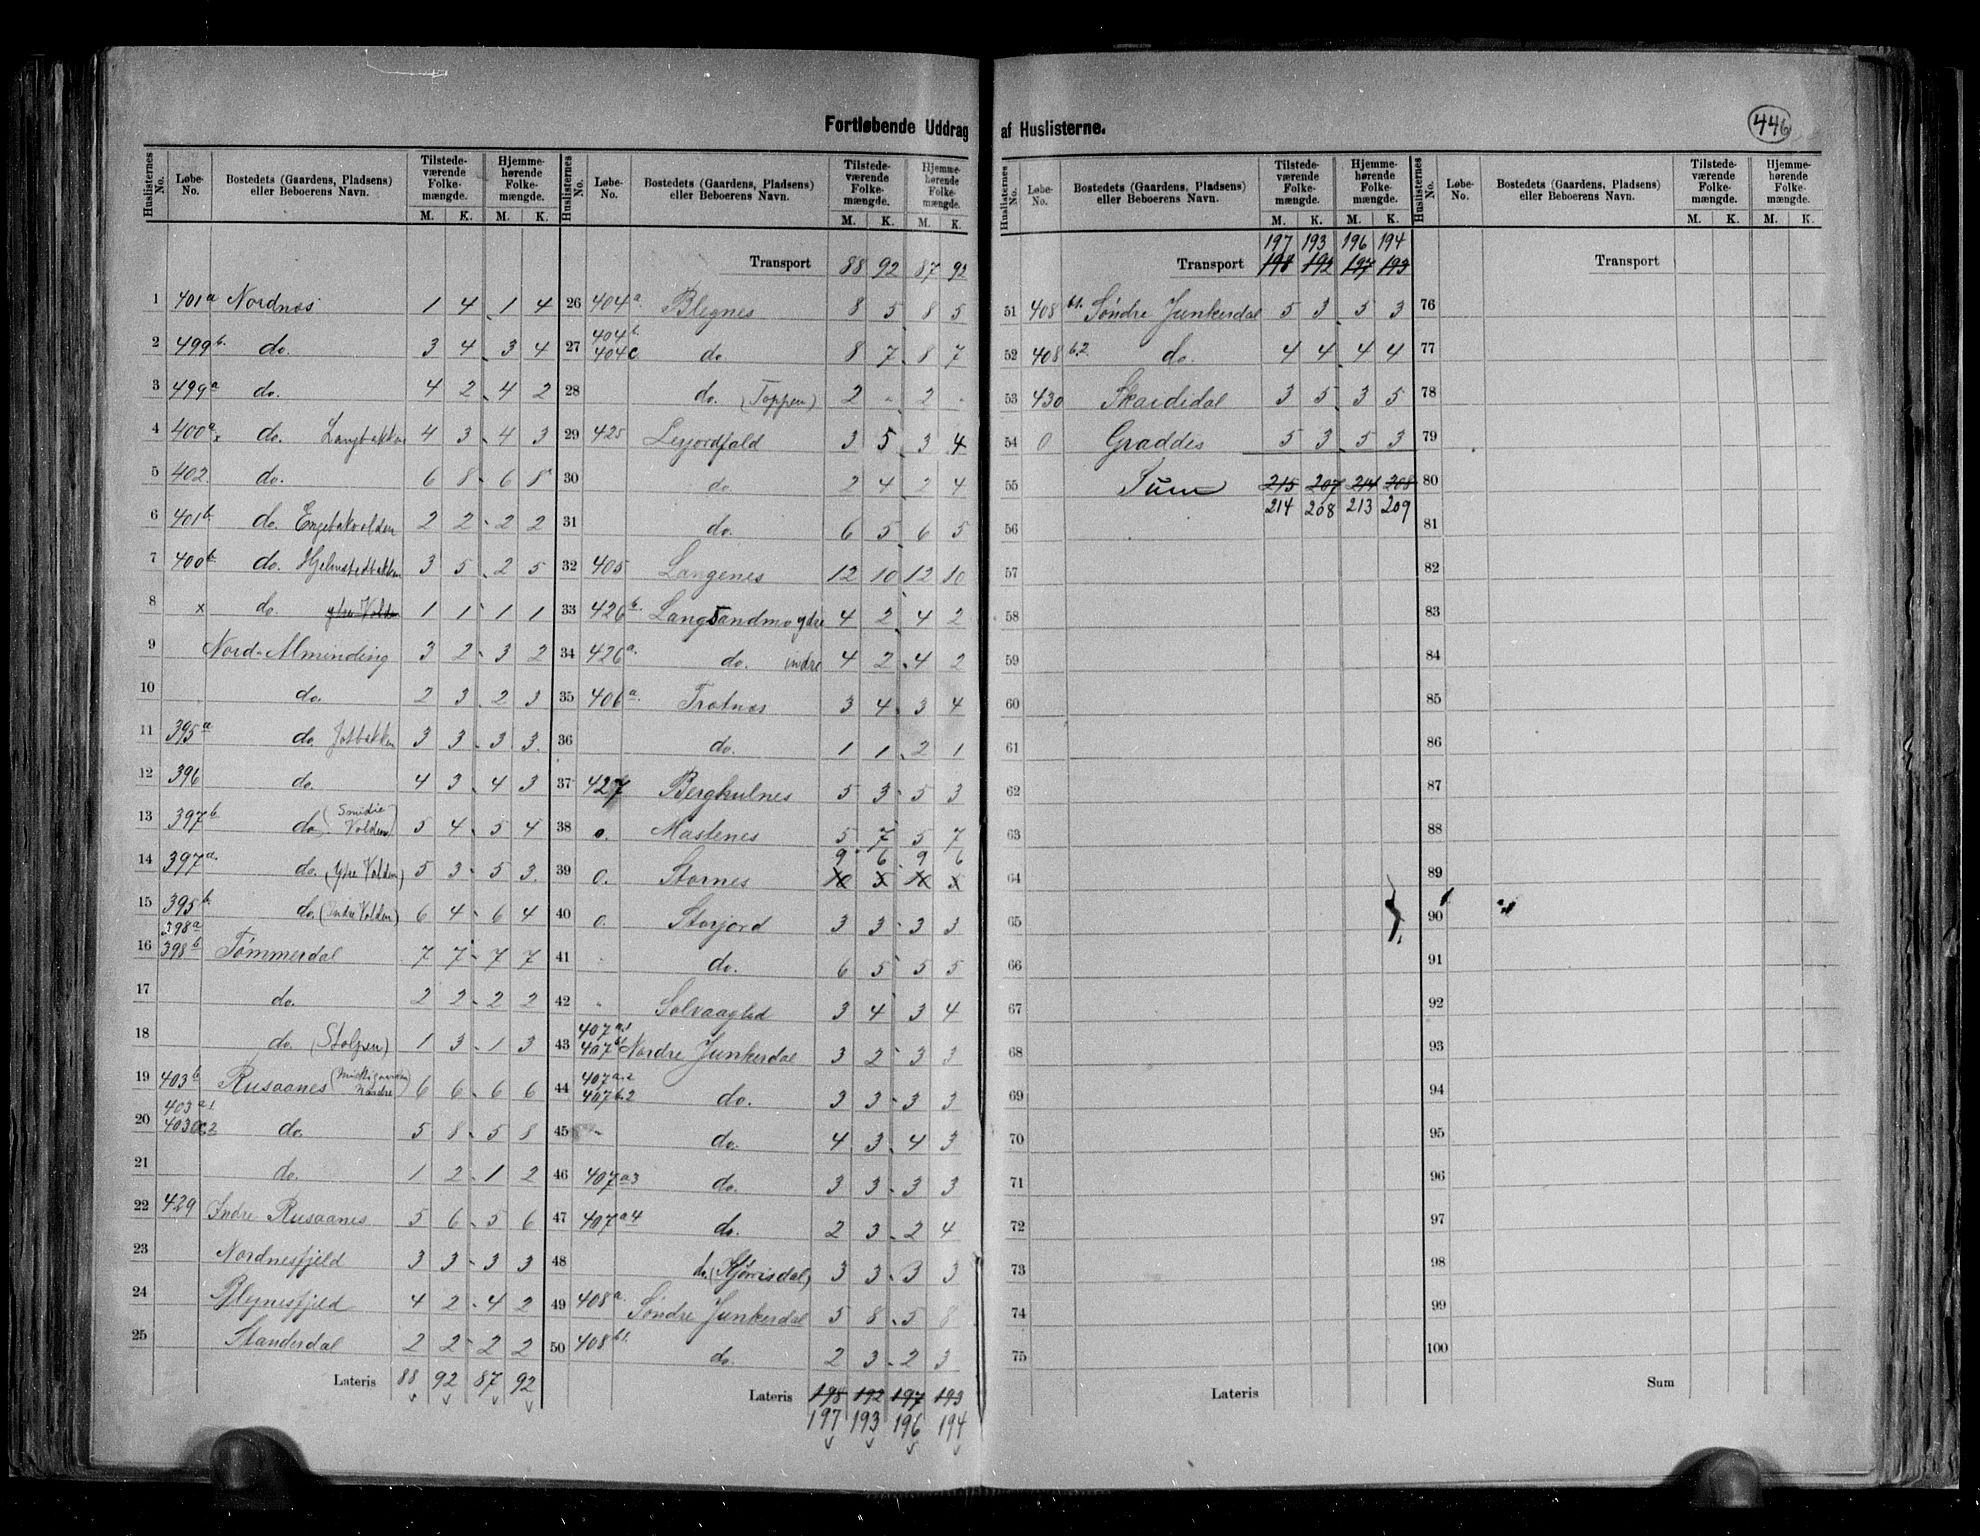 Fortløbende Uddrag af Huslisterne.
446
Huslisternes No. Løbe-No. Bostedets (Gaardens, Pladsens) eller Beboerens Navn. Tilstedeværende Folkemængde. M. K. Hjemmehørende Folkemængde. M. K.
1 401a Nordnæs 1 4 1 4
2 499b. do. 3 4 3 4
3 499a do. 4 2 4 2
4 400a x do. 4 3 4 3
5 402. do. 6 8 6 8
6 401b. do. Engebakvolden 2 2 2 2
7 400b. do. 3 5 2 5
8 x do. ytre Volden 1 1 1 1
9 Nord-Almending 3 2 3 2
10 do. 2 3 2 3
11 395a do. 3 3 3 3.
12 396 do. 4 3 4 3
13 397b do. (Smidie Volden) 5 4 5 4
14 397a. do. (Ydre Volden) 5 3 5 3.
15 395b. do. (Indre Volden) 6 4 6 4
398a
16 398b Tømmerdal 7 7 7 7
17 do. 2 2 2 2
18 do. (Stolpen) 1 3 1 3
19 403b Rusaanes (Nordre) 6 6 6 6
403a1
20 403a2 do. 5 8 5 8
21 do. 1 2 1 2
22 429 Indre Rusaanes 5 6 5 6
23 Nordnesfjeld 3 3 3 3
24 Blegnesfjeld 4 2 4 2
25 Standerdal 2 2 2 2
Lateris 88 92 87 92
Huslisternes No. Løbe-No. Bostedets (Gaardens, Pladsens) eller Beboerens Navn. Tilstedeværende Folkemængde. M. K. Hjemmehørende Folkemængde. M. K.
Transport 88 92 87 92
26 404a. Blegnes 8 5 8 5
404b.
27 404c do 8 7 8 7
28 do. (Toppen) 2 - 2 -
29 425 3 5 3 4
30 do 2 4 2 4
31 do. 6 5 6 5
32 405 Langenes 12 10 12 10
33 426b. Langsandmo ydre 4 2 4 2
34 426a. do. indre 4 2 4 2
35 406a. Trotnæs 3 4 3 4
36 do. 1 1 2 1
37 427 Berghulnes 5 3 5 3
38 o. Mastenes 5 7 5 7
9 6 9 6
39 0. Stornes 10 5 10 5
40 0. Storjord 3 3 3 3
41 do. 6 5 5 5
42 Solvaaglid 3 4 3 4
407a.1
43 407b1 Nordre Junkerdal 3 2 3 3
407a.2
44 407b.2 do. 3 3 3 3
45 do. 4 3 4 3
46 407a3 do. 3 3 3 3
47 407a4 do. 2 3 2 4
48 do. 3 3 3 3
49 408a. Søndre Junkerdal 5 8 5 8
50 408b1. do. 2 3 2 3
Lateris 198 192 197 193
197 193 196 194
Huslisternes No. Løbe-No. Bostedets (Gaardens, Pladsens) eller Beboerens Navn. Tilstedeværende Folkemængde. M. K. Hjemmehørende Folkemængde. M. K.
197 193 196 194
Transport 198 192 197 193
51 408 b1. Søndre Junkerdal 5 3 5 3
52 408 b.2 do. 4 4 4 4
53 430 Skaididal 3 5 3 5
54 0 Graddes 5 3 5 3
55 Sum 215 207 214 208
214 208 213 209
56
57
58
59
60
61
62
63
64
65
66
67
68
69
70
71
72
73
74
75
Lateris
Huslisternes No. Løbe-No. Bostedets (Gaardens, Pladsens) eller Beboerens Navn. Tilstedeværende Folkemængde. M. K. Hjemmehørende Folkemængde. M. K.
Transport
76
77
78
79
80
81
82
83
84
85
86
87
88
89
90
91
92
93
94
95
96
97
98
99
100
Sum